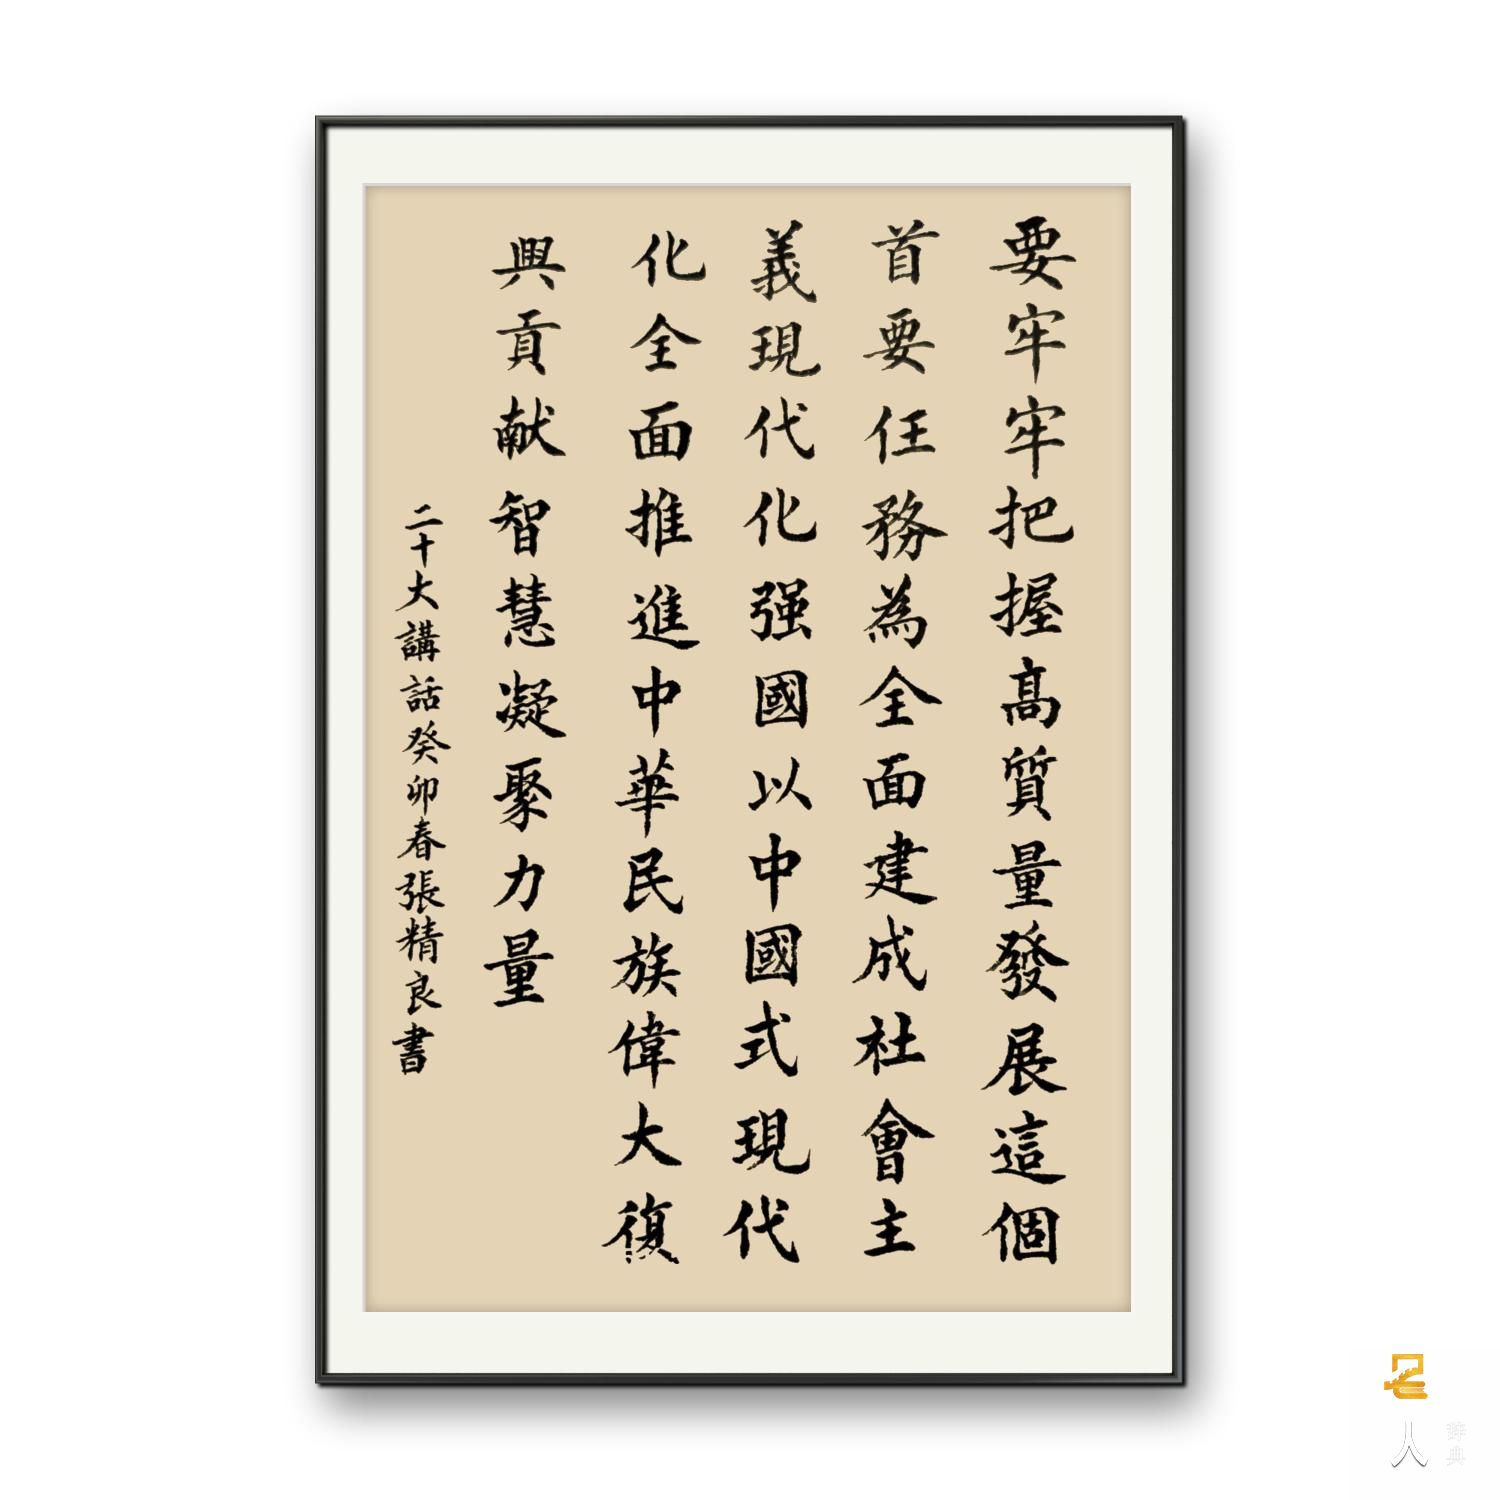 要牢牢把握高質量發展這個
首要任務為全面建成社會主
義現代化强國以中國式現代
化全面推進中華民族偉大復
興貢献智慧凝聚力量
二十大講話癸卯春張精良書
人
辞典